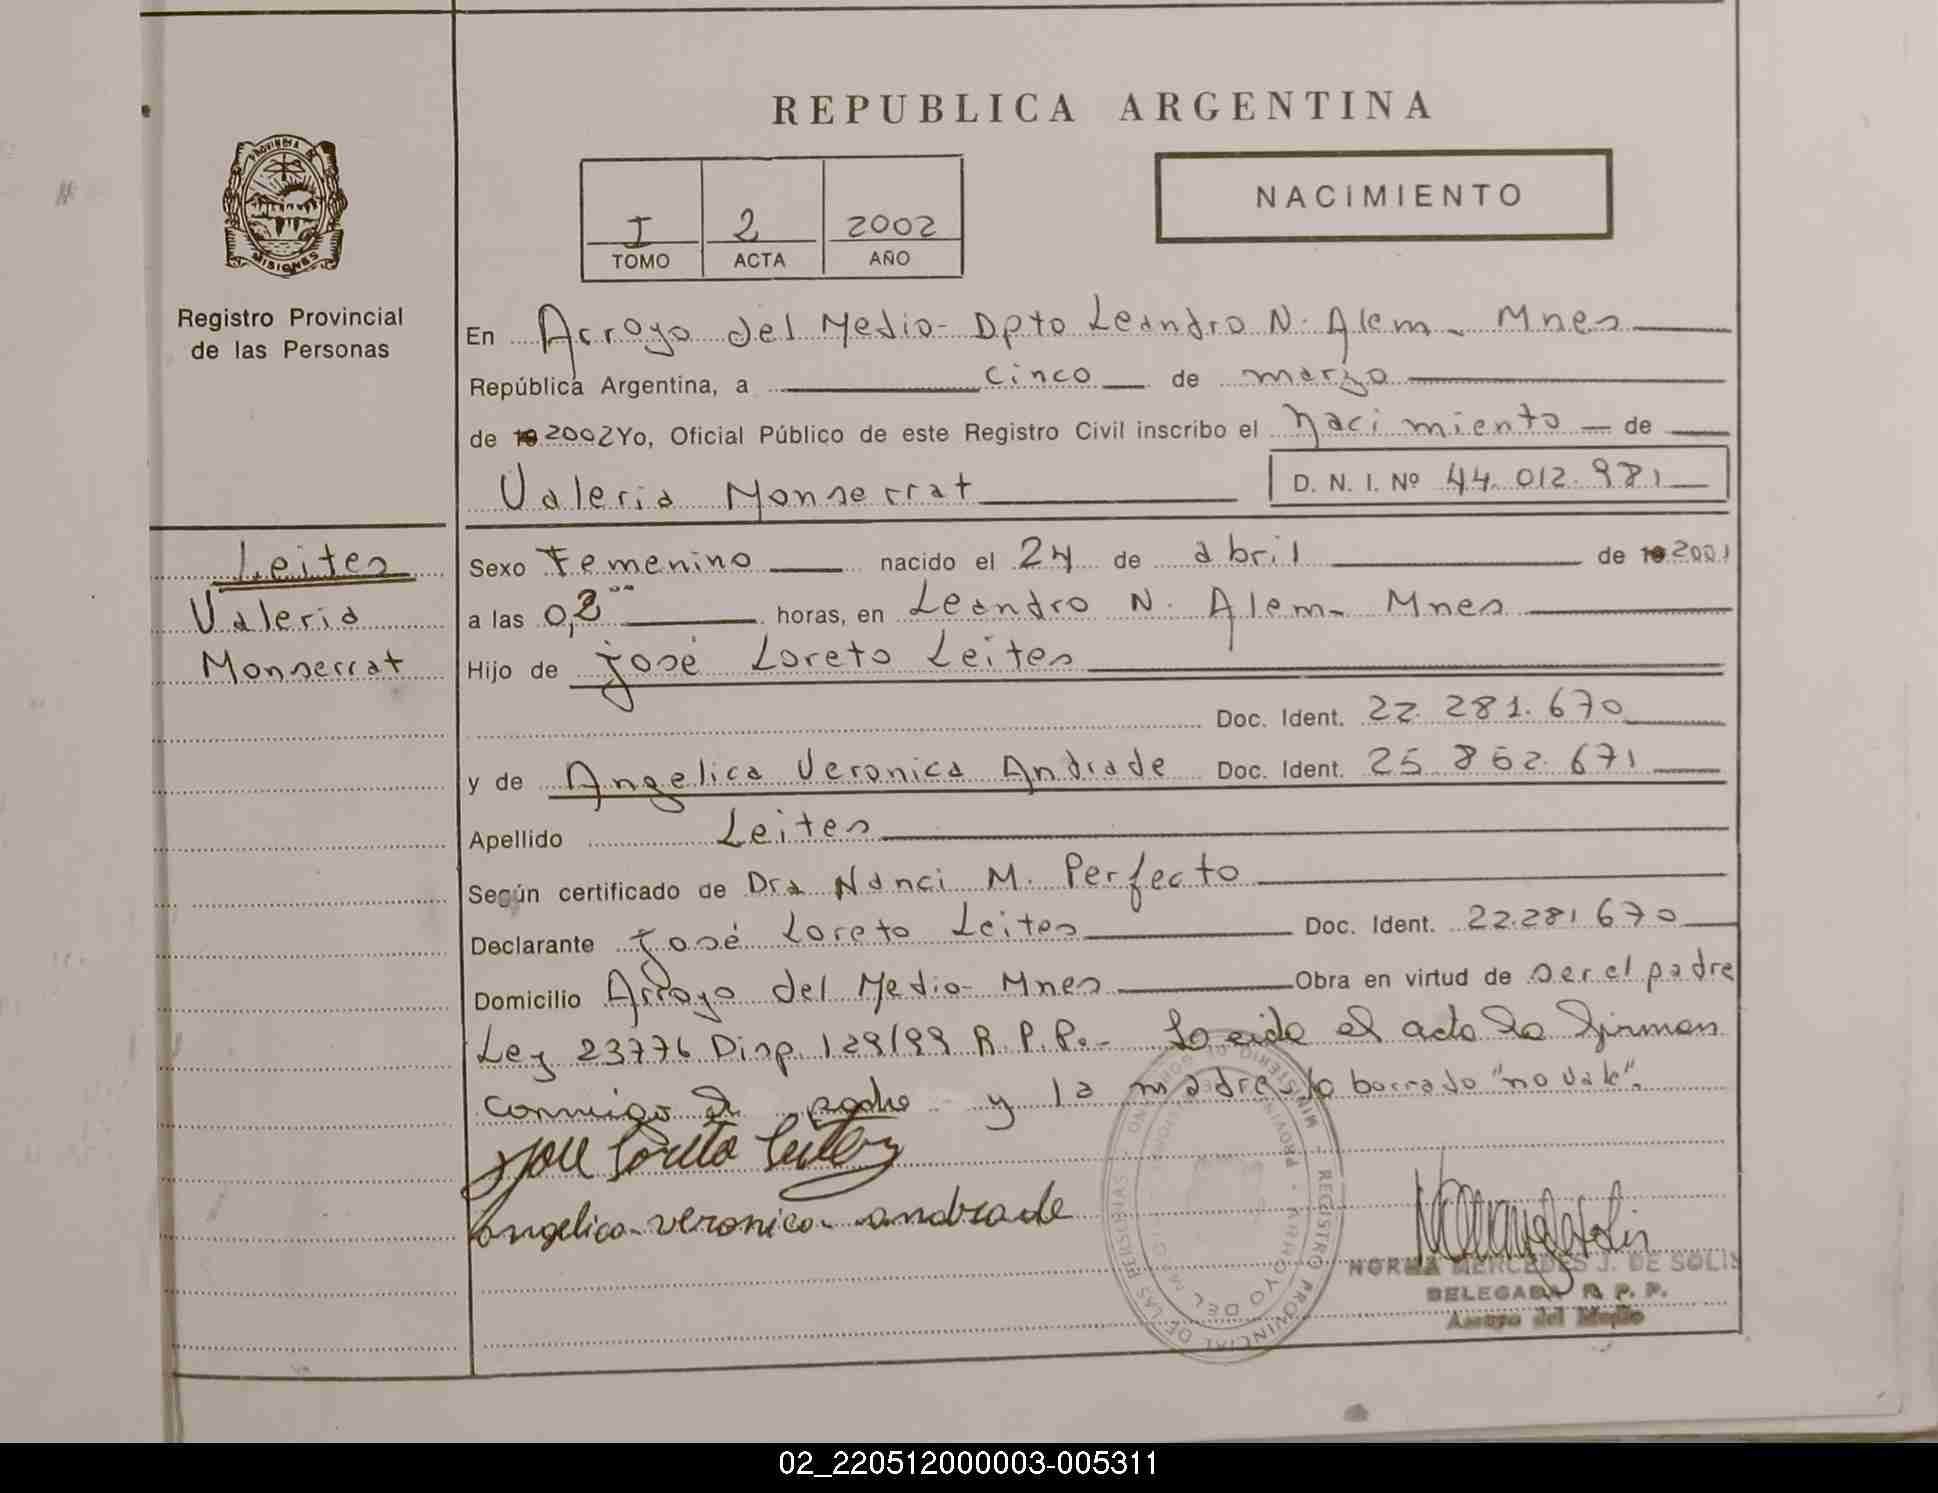 REPUBLICA ARGENTINA
PROVINCIA DE
MISIONES
Registro Provincial
de las Personas
I 2 2002
TOMO ACTA AÑO
NACIMIENTO
En Arroyo del Medio- Dpto Leandro N. Alem- Mnes
República Argentina, a cinco de marzo
de 19 2002 Yo, Oficial Público de este Registro Civil inscribo el Nacimiento de
Valeria Monserrat D. N. I. Nº 44.012.981
Leites
Valeria
Monserrat
Sexo Femenino nacido el 24 de abril de 19 2001
a las 0,2 horas, en Leandro N. Alem- Mnes
Hijo de José Loreto Leites
Doc. Ident. 22.281.670
y de Angelica Veronica Andrade Doc. Ident. 25.862.671
Apellido Leites
Según certificado de Dra Nanci M. Perfecto
Declarante José Loreto Leites Doc. Ident. 22.281.670
Domicilio Arroyo del Medio- Mnes Obra en virtud de ser el padre
Ley 23776 Disp. 129/99 R.P.P.- Leida el acta la firman
conmigo el padre y la madre lo borrado "no vale".
Jose Loreto Leites
angelica veronica andrade
MINISTERIO DE GOBIERNO - REGISTRO PROVINCIAL DE LAS PERSONAS
ARROYO DEL
NORMA MERCEDES J. DE SOLIS
DELEGADA R. P. P.
Arroyo del Medio
02_220512000003-005311